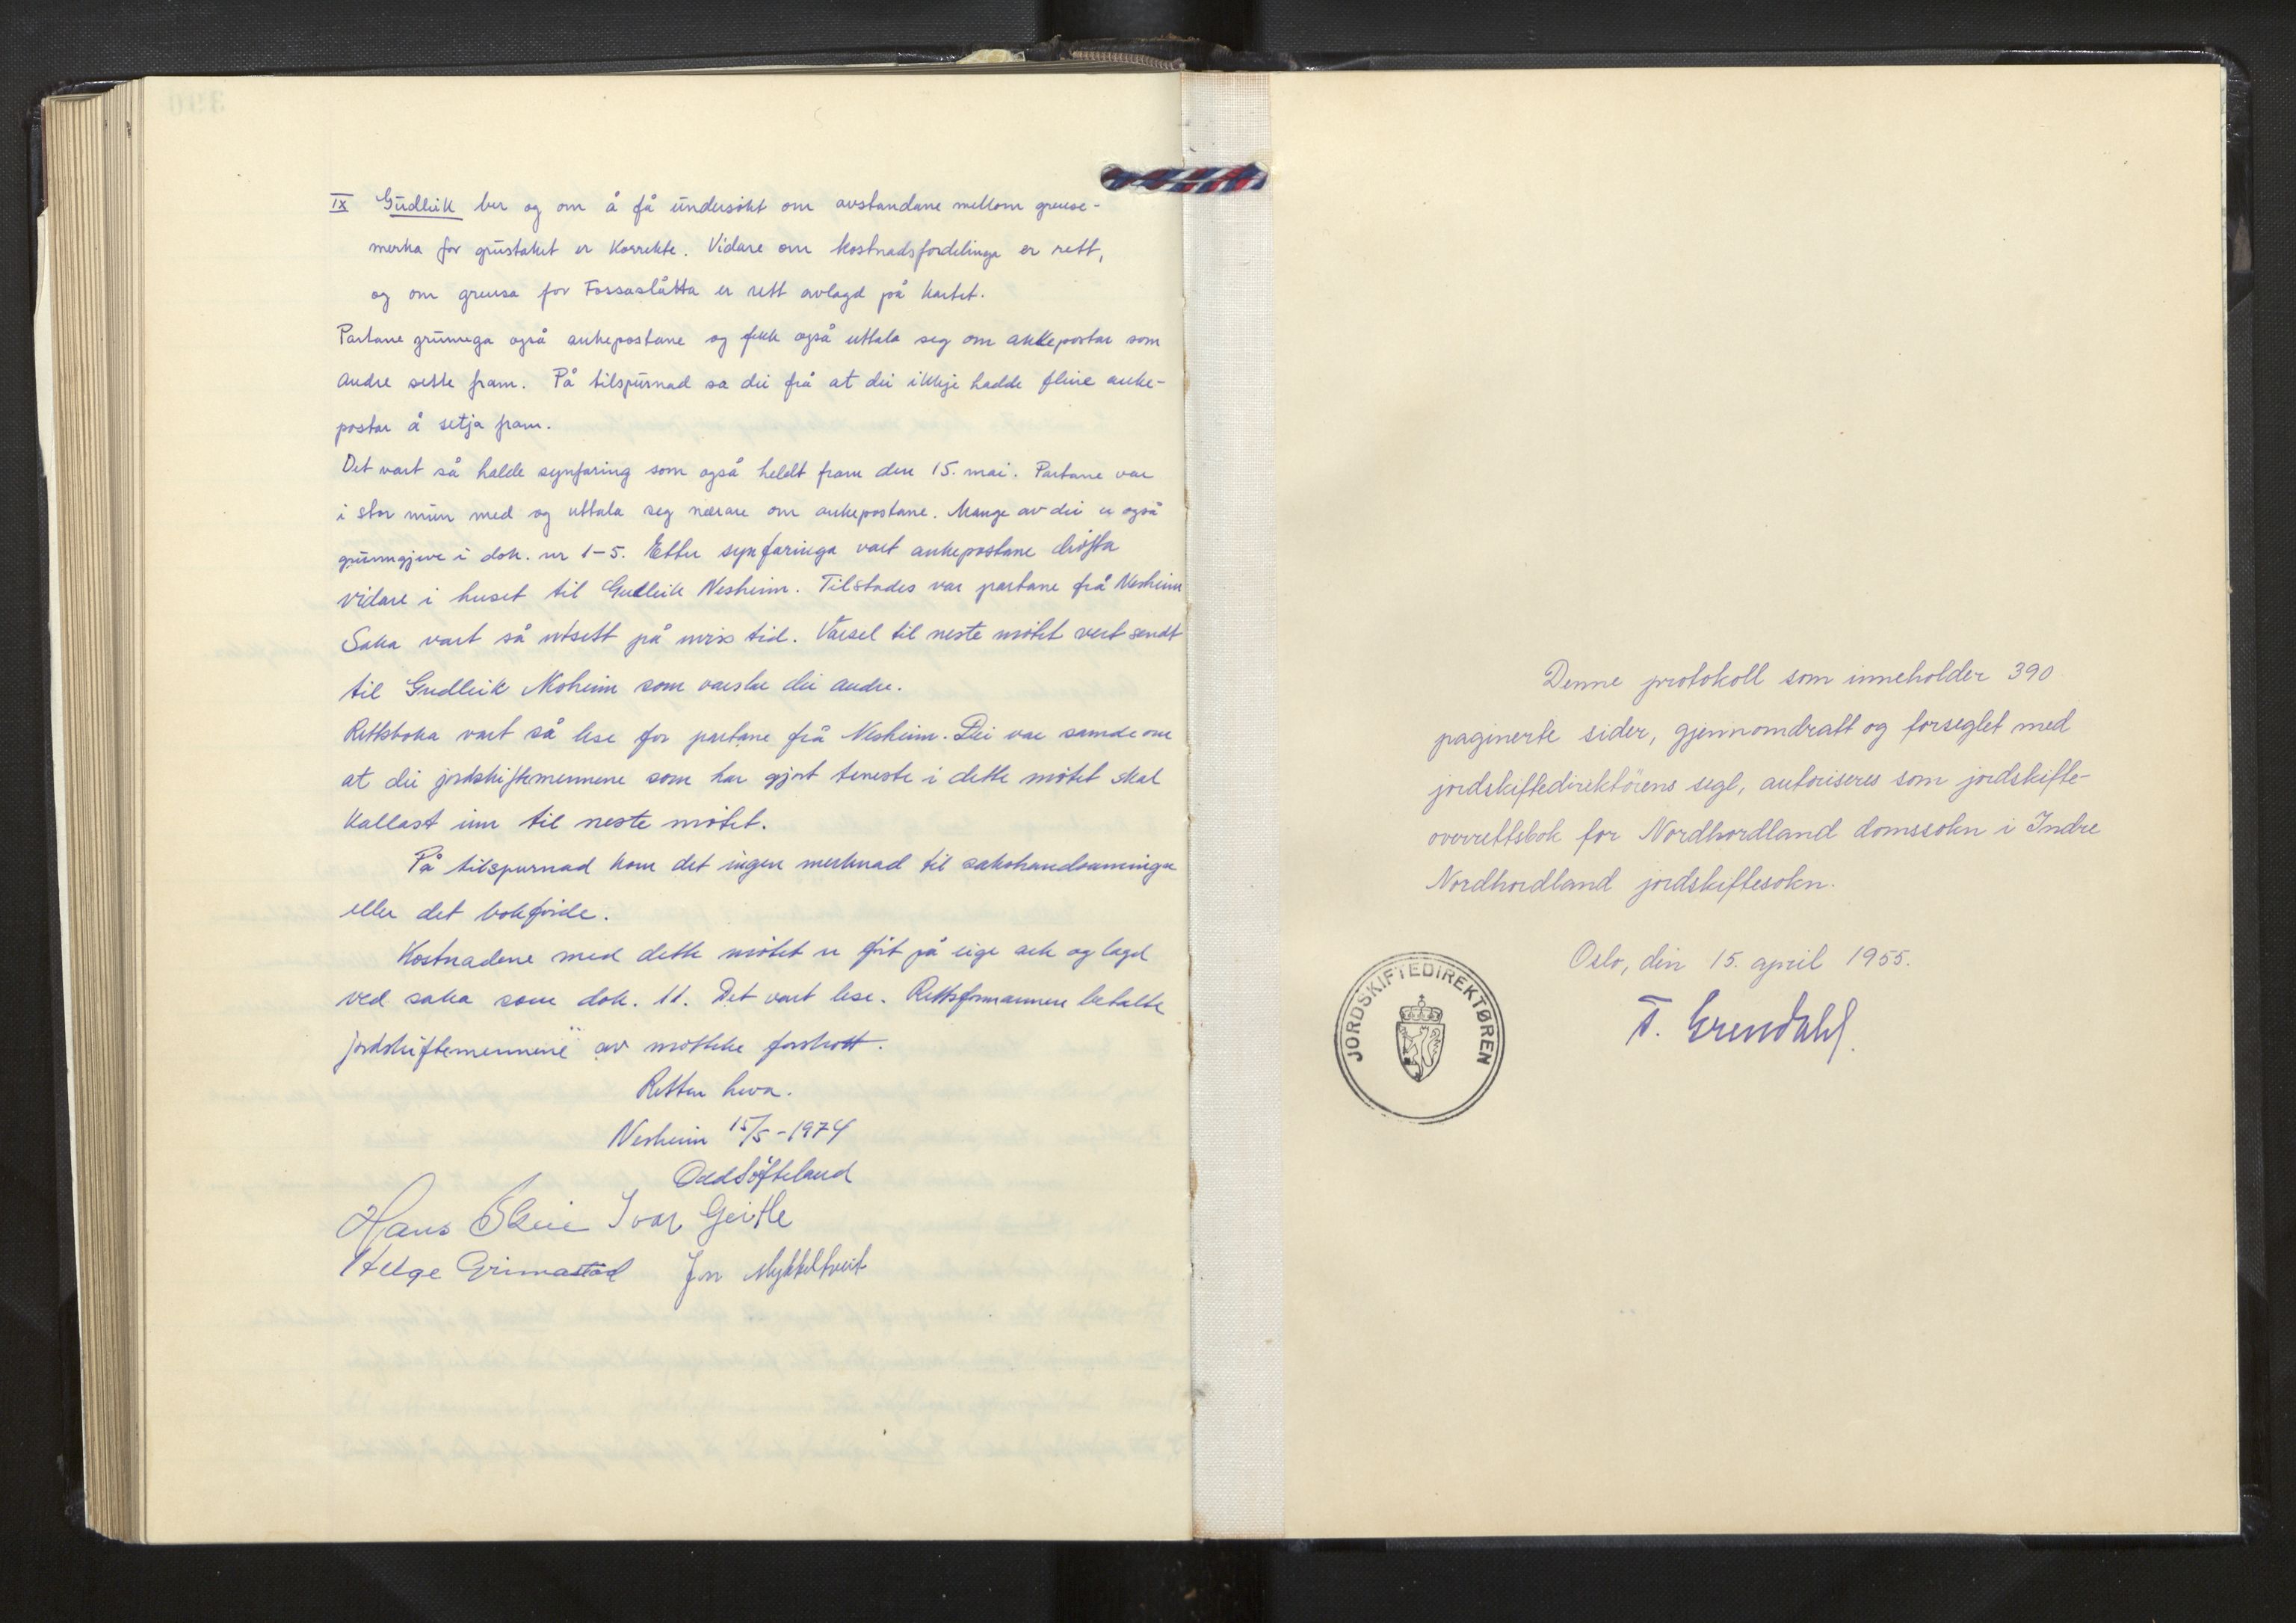 IX Gudleik ber og om å få undersøkt om avstandane mellom grense-
merka for grustaket er korrekte. Vidare om kostnadsfordelinga er rett,
og om grensa for Fossaslåtta er rett avlagd på kartet.
Partane grunnga også ankepostane og fekk også uttala seg om ankepostar som
andre sette fram. På tilspurnad sa dei frå at dei ikkje hadde fleire anke-
postar å setja fram.
Det vart så halde synfaring som også heldt fram den 15. mai. Partane var
i stor mun med og uttala seg nærare om ankepostane. Mange av dei er også
grunngjeve i dok. nr 1-5. Etter synfaringa vart ankepostane drøfta
vidare i huset til Gudleik Nesheim. Tilstades var partane frå Nesheim
Saka vart så utsett på uviss tid. Varsel til neste møtet vert sendt
til Gudleik Nesheim som varslar dei andre.
Rettsboka vart så lese for partane frå Nesheim. Dei var samde om
at dei jordskiftemennene som har gjort teneste i dette møtet skal
kallast inn til neste møtet.
På tilspurnad kom det ingen merknad til sakshandsaminga
eller det bokførde.
Kostnadene med dette møtet er ført på eige ark og lagd
ved saka som dok. 11. Det vart lese. Rettsformannen betalte
jordskiftemennene av mottke forskott.
Retten heva.
Nesheim 15/5-1974
Odd Søfteland
Hans Skeie Ivar Geitle
Helge Grimastad Jon Mykkeltveit
Denne protokoll som inneholder 390
paginerte sider, gjennomdratt og forseglet med
jordskiftedirektörens segl, autoriseres som jordskifte-
overrettsbok for Nordhordland domssokn i Indre
Nordhordland jordskiftesokn.
Oslo, den 15. april 1955.
T. Grendahl.
JORDSKIFTEDIREKTØREN